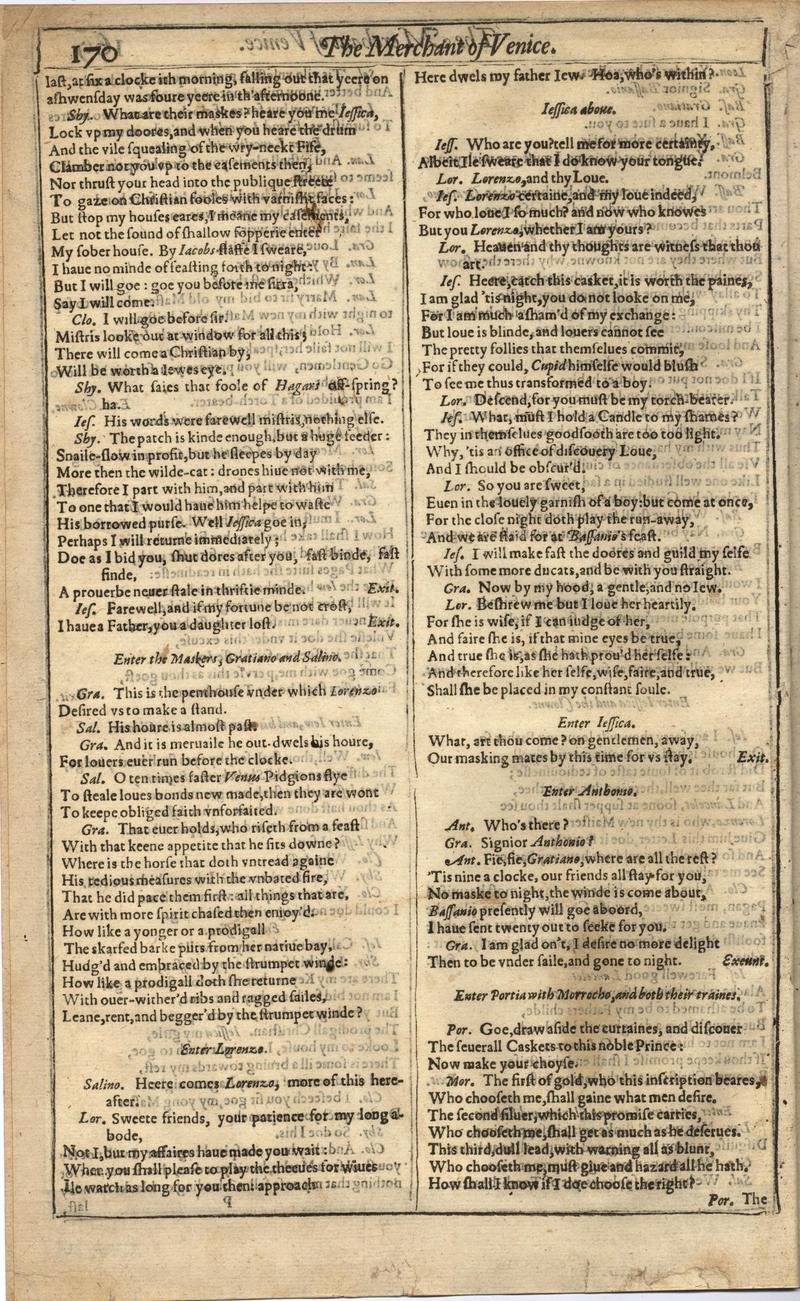 170 The Merchant of Venice.
last, at six a clocke ith morning, falling out that yeere on
ashwensday was foure yeere in th'afternoone.
Shy. What are their maskes? heare you me Iessica,
Lock vp my doores, and when you heare the drum
And the vile squealing of the wry-neckt Fife,
Clamber not you vp to the casements then,
Nor thrust your head into the publique streete
To gaze on Christian fooles with varnisht faces:
But stop my houses eares, I meane my casements,
Let not the sound of shallow fopperie enter
My sober house. By Iacobs staffe I sweare,
I haue no minde of feasting forth to night:
But I will goe: goe you before me sirra,
Say I will come.
Clo. I will goe before sir.
Mistris looke out at window for all this;
There will come a Christian by,
Will be worth a Iewes eye.
Shy. What saies that foole of Hagars off-spring?
ha.
Ies. His words were farewell mistris, nothing else.
Shy. The patch is kinde enough, but a huge feeder:
Snaile-slow in profit, but he sleepes by day
More then the wilde-cat: drones hiue not with me,
Therefore I part with him, and part with him
To one that I would haue him helpe to waste
His borrowed purse. Well Iessica goe in,
Perhaps I will returne immediately;
Doe as I bid you, shut dores after you, fast binde, fast
finde,
A prouerbe neuer stale in thriftie minde. Exit.
Ies. Farewell, and if my fortune be not crost,
I haue a Father, you a daughter lost. Exit.
Enter the Maskers, Gratiano and Salino.
Gra. This is the penthouse vnder which Lorenzo
Desired vs to make a stand.
Sal. His houre is almost past.
Gra. And it is meruaile he out-dwels his houre,
For louers euer run before the clocke.
Sal. O ten times faster Venus Pidgions flye
To steale loues bonds new made, then they are wont
To keepe obliged faith vnforfaited.
Gra. That euer holds, who riseth from a feast
With that keene appetite that he sits downe?
Where is the horse that doth vntread againe
His tedious measures with the vnbated fire,
That he did pace them first: all things that are,
Are with more spirit chased then enioy'd.
How like a yonger or a prodigall
The skarfed barke puts from her natiue bay,
Hudg'd and embraced by the strumpet winde:
How like a prodigall doth she returne
With ouer-wither'd ribs and ragged sailes,
Leane, rent, and begger'd by the strumpet winde?
Enter Lorenzo.
Salino. Heere comes Lorenzo, more of this here-
after.
Lor. Sweete friends, your patience for my long a-
bode,
Not I, but my affaires haue made you wait:
When you shall please to play the theeues for wiues
Ile watch as long for you then: approach
P
Here dwels my father Iew. Hoa, who's within?
Iessica aboue.
Iess. Who are you? tell me for more certainty,
Albeit Ile sweare that I do know your tongue.
Lor. Lorenzo, and thy Loue.
Ies. Lorenzo certaine, and my loue indeed,
For who loue I so much? and now who knowes
But you Lorenzo, whether I am yours?
Lor. Heauen and thy thoughts are witness that thou
art.
Ies. Heere, catch this casket, it is worth the paines,
I am glad 'tis night, you do not looke on me,
For I am much asham'd of my exchange:
But loue is blinde, and louers cannot see
The pretty follies that themselues commit,
For if they could, Cupid himselfe would blush
To see me thus transformed to a boy.
Lor. Descend, for you must be my torch-bearer.
Ies. What, must I hold a Candle to my shames?
They in themselues goodsooth are too too light.
Why, 'tis an office of discouery Loue,
And I should be obscur'd.
Lor. So you are sweet,
Euen in the louely garnish of a boy: but come at once,
For the close night doth play the run-away,
And we are staid for at Bassanio's feast.
Ies. I will make fast the doores and guild my selfe
With some more ducats, and be with you straight.
Gra. Now by my hood, a gentle, and no Iew.
Lor. Beshrew me but I loue her heartily.
For she is wise, if I can iudge of her,
And faire she is, if that mine eyes be true,
And true she is, as she hath prou'd her selfe:
And therefore like her selfe, wise, faire, and true,
Shall she be placed in my constant soule.
Enter Iessica.
What, art thou come? on gentlemen, away,
Our masking mates by this time for vs stay. Exit.
Enter Anthonio.
Ant. Who's there?
Gra. Signior Anthonio?
Ant. Fie, fie, Gratiano, where are all the rest?
'Tis nine a clocke, our friends all stay for you,
No maske to night, the winde is come about,
Bassanio presently will goe aboord,
I haue sent twenty out to seeke for you.
Gra. I am glad on't, I desire no more delight
Then to be vnder saile, and gone to night. Exeunt.
Enter Portia with Morrocho, and both their traines.
Por. Goe, draw aside the curtaines, and discouer
The seuerall Caskets to this noble Prince:
Now make your choyse.
Mor. The first of gold, who this inscription beares,
Who chooseth me, shall gaine what men desire.
The second siluer, which this promise carries,
Who chooseth me, shall get as much as he deserues.
This third, dull lead, with warning all as blunt,
Who chooseth me, must giue and hazard all he hath.
How shall I know if I doe choose the right?
Por. The